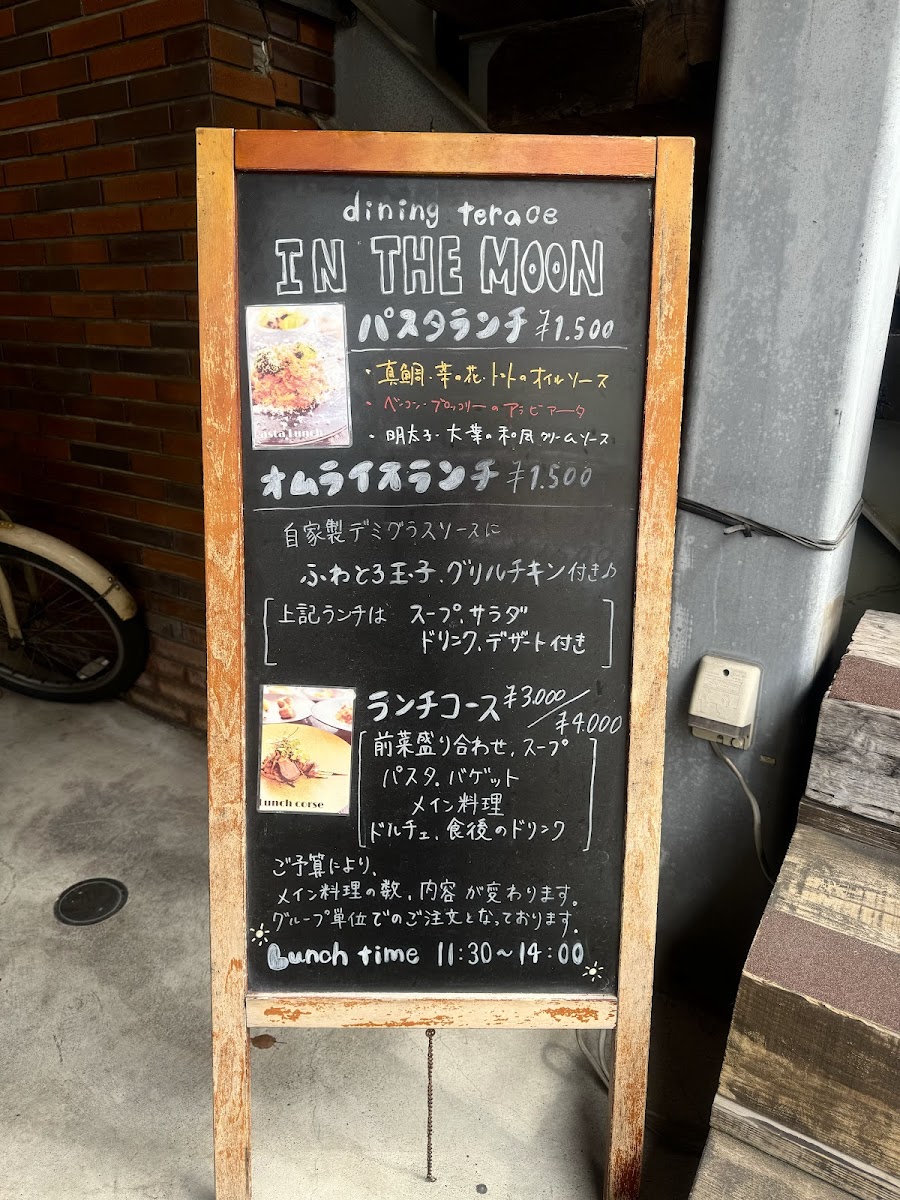 dining terace
IN THE MOON
パスタランチ ¥1.500
・真鯛・菜の花・トマトのオイルソース
・ベーコン・ブロッコリーのアラビアータ
・明太子・大葉の和風クリームソース
Pasta Lunch
オムライスランチ ¥1.500
自家製デミグラスソースに
ふわとろ玉子、グリルチキン付き♪
上記ランチは スープ、サラダ
ドリンク、デザート付き
ランチコース ¥3.000/¥4.000
前菜盛り合わせ、スープ
パスタ、バゲット
メイン料理
ドルチェ、食後のドリンク
Lunch corse
ご予算により、
メイン料理の数、内容が変わります。
グループ単位でのご注文となっております。
Lunch time 11:30~14:00